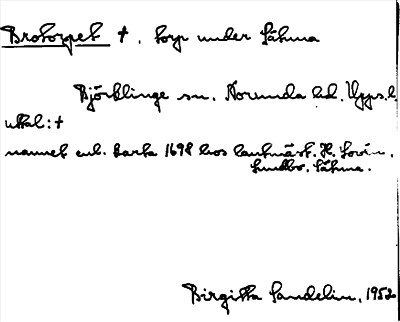 Brotorpet †, torp under Sätuna
Björklinge sn, Norunda hd, Upps.l.
uttal: †
namnet enl. karta 1698 hos lantmät. H. Lovén,
Lundbo, Sätuna.
Birgitta Sandelin, 1952